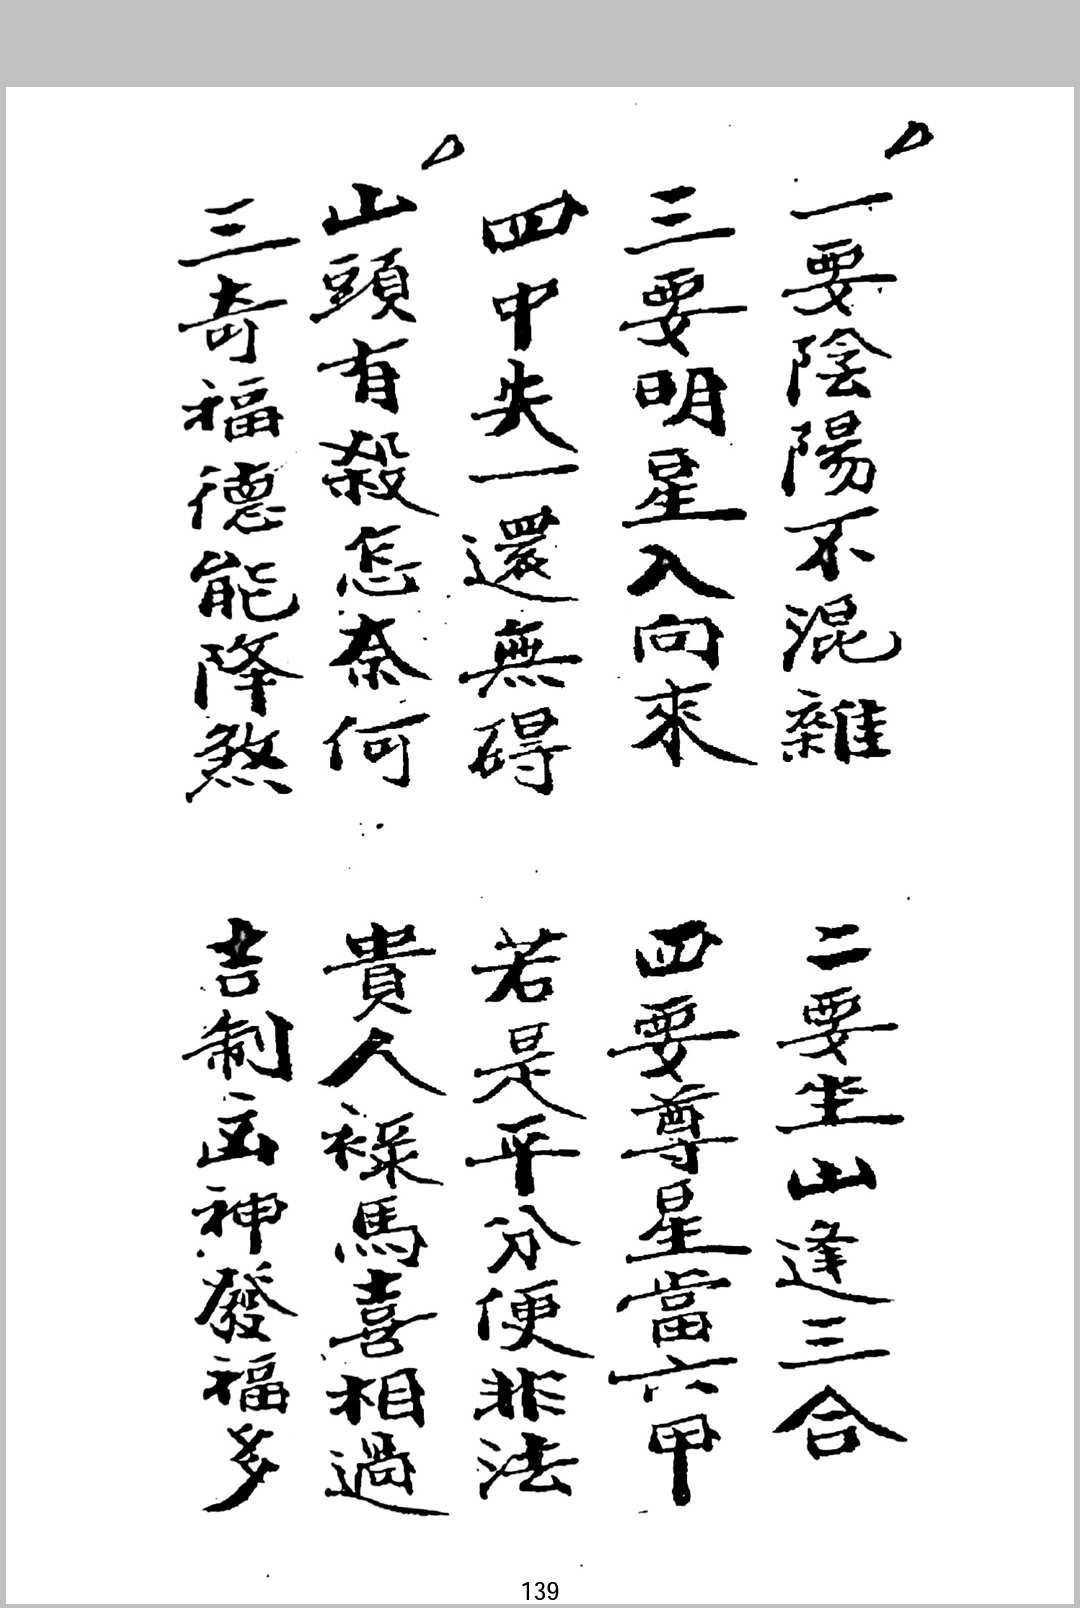 一要陰陽不混雜
二要坐山逢三合
三要明星入向來
四要尊星當六甲
四中失一還無碍
若是平分便非法
山頭有殺怎奈何
貴人祿馬喜相過
三奇福德能降煞
吉制凶神發福多
139